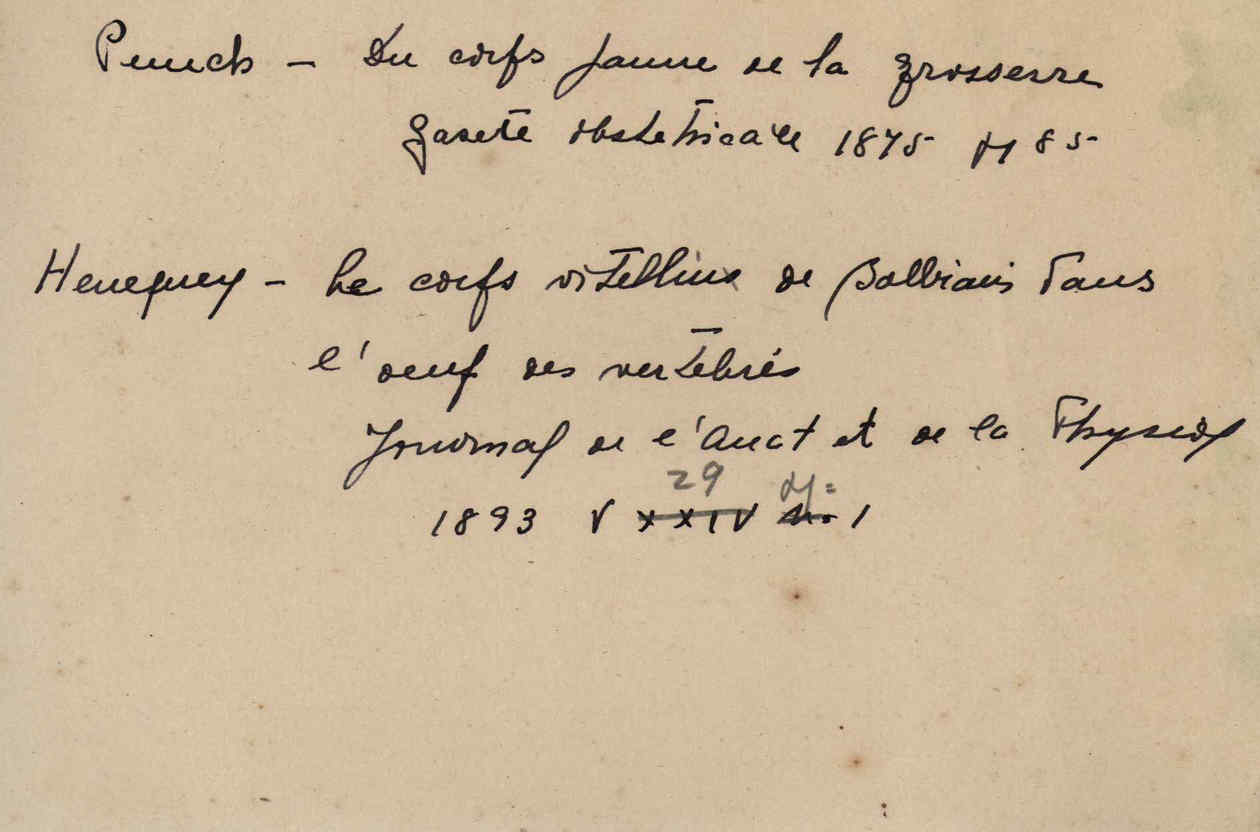 Puech - Du corps jaune de la grossesse
Gazete obstetricale 1875 p 85
Heneguey - Le corps vitellins de Balbiani dans
l'oeuf des vertebrés
Journal de l'Anat et de la Physiol
29 p:
1893 V XXIV no. 1